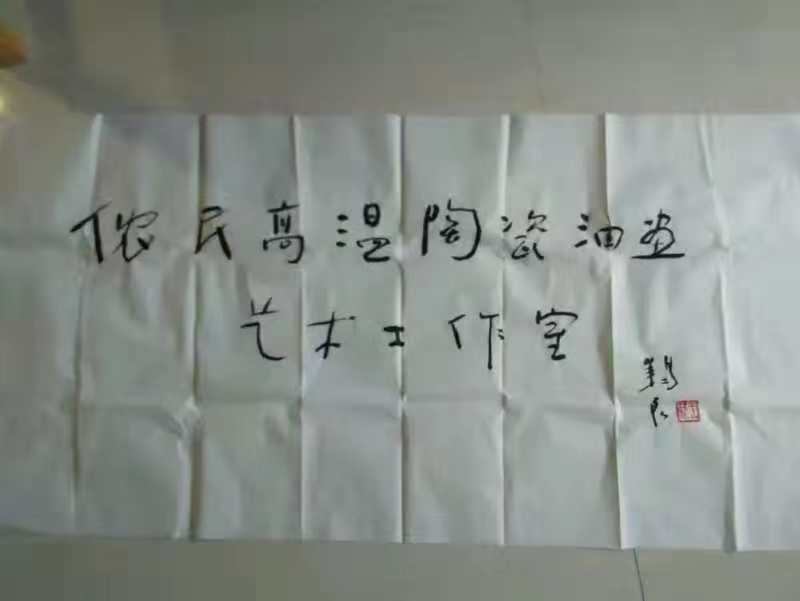 侬民高温陶瓷油画
艺术工作室